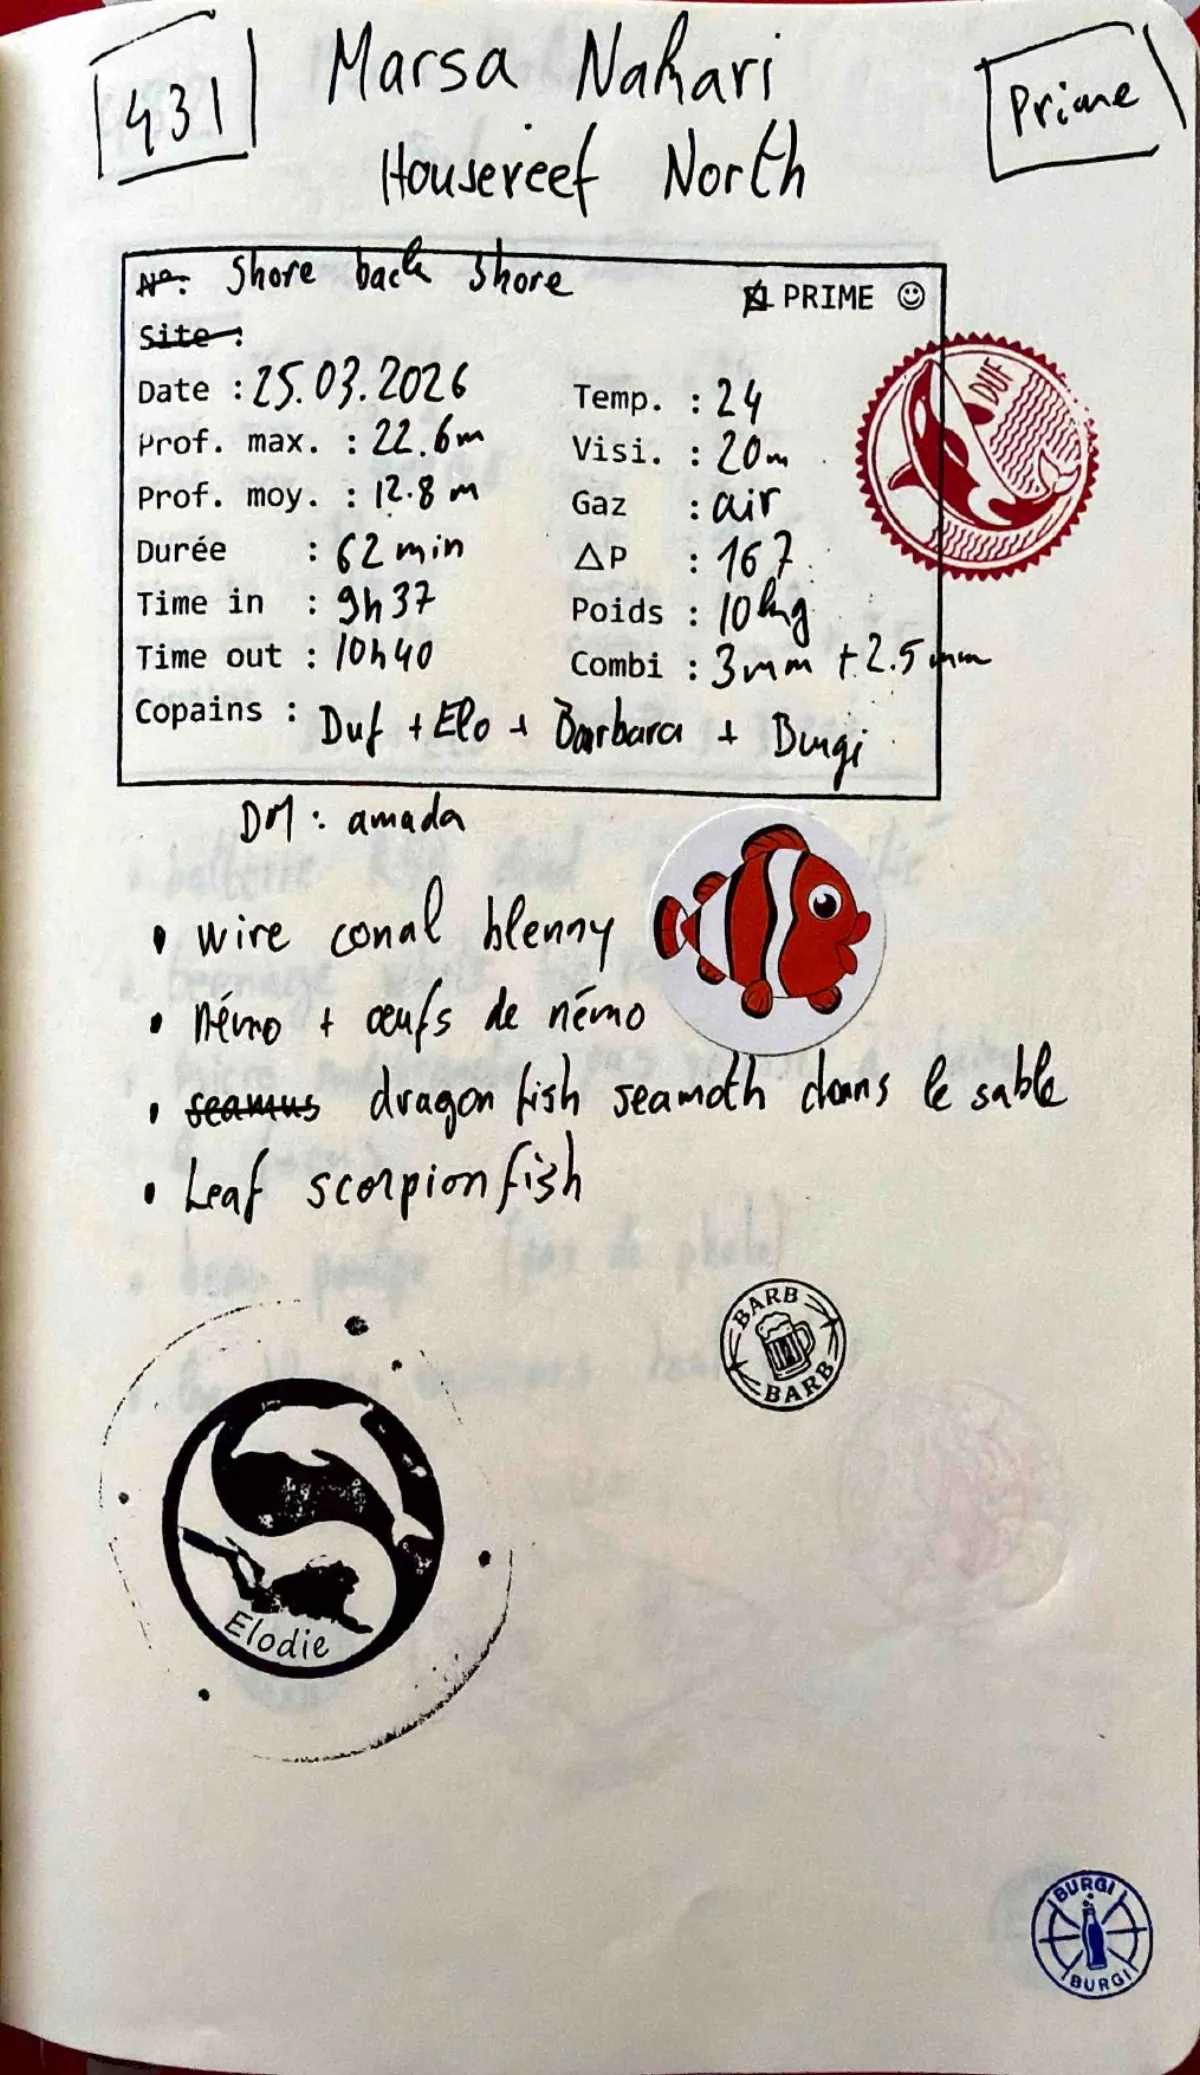 431
Marsa Nahari
Prime
Housereef North
N°: Shore back shore
PRIME ☺
Site :
Date : 25.03.2026
Temp. : 24
Prof. max. : 22.6m
Visi. : 20m
Prof. moy. : 12.8 m
Gaz : air
Durée : 62 min
ΔP : 167
Time in : 9h37
Poids : 10kg
Time out : 10h40
Combi : 3mm + 2.5mm
Copains : Duf + Elo + Barbara + Burgi
DUF
DM : amada
• wire conal blenny
• némo + œufs de némo
• seamus dragon fish seamoth dans le sable
• Leaf scorpionfish
BARB
BARB
Elodie
BURGI
BURGI